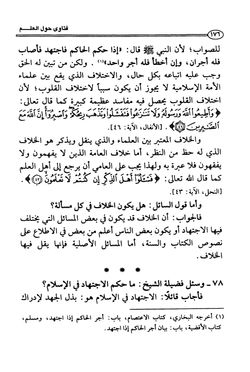 ١٧٦
فتاوى حول العلـــم
للصواب؛ لأن النبي ﷺ قال: «إذا حكم الحاكم فاجتهد فأصاب
فله أجران، وإن أخطأ فله أجر واحد»(١). ولكن من تبين له الحق
وجب عليه اتباعه بكل حال، والاختلاف الذي يقع بين علماء
الأمة الإسلامية لا يجوز أن يكون سبباً لاختلاف القلوب؛ لأن
اختلاف القلوب يحصل فيه مفاسد عظيمة كبيرة كما قال تعالى:
﴿وَأَطِيعُوا اللَّهَ وَرَسُولَهُ وَلَا تَنَازَعُوا فَتَفْشَلُوا وَتَذْهَبَ رِيحُكُمْ وَاصْبِرُوا إِنَّ اللَّهَ مَعَ
الصَّابِرِينَ﴾ [الأنفال، الآية: ٤٦].
والخلاف المعتبر بين العلماء والذي ينقل ويذكر هو الخلاف
الذي له حظ من النظر، أما خلاف العامة الذين لا يفهمون ولا
يفقهون فلا عبرة به ولهذا يجب على العامي أن يرجع إلى أهل العلم
كما قال الله تعالى: ﴿فَسْئَلُوا أَهْلَ الذِّكْرِ إِن كُنتُمْ لَا تَعْلَمُونَ﴾
[النحل، الآية: ٤٣].
وأما قول السائل: هل يكون الخلاف في كل مسألة؟
فالجواب: أن الخلاف قد يكون في بعض المسائل التي يختلف
فيها الاجتهاد أو يكون بعض الناس أعلم من بعض في الاطلاع على
نصوص الكتاب والسنة، أما المسائل الأصلية فإنها يقل فيها
الخلاف.
* * *
٧٨ ـ وسئل فضيلة الشيخ: ما حكم الاجتهاد في الإسلام؟
فأجاب قائلاً: الاجتهاد في الإسلام هو: بذل الجهد لإدراك
(١) أخرجه البخاري، كتاب الاعتصام، باب: أجر الحاكم إذا اجتهد، ومسلم،
كتاب الأقضية، باب: بيان أجر الحاكم إذا اجتهد.